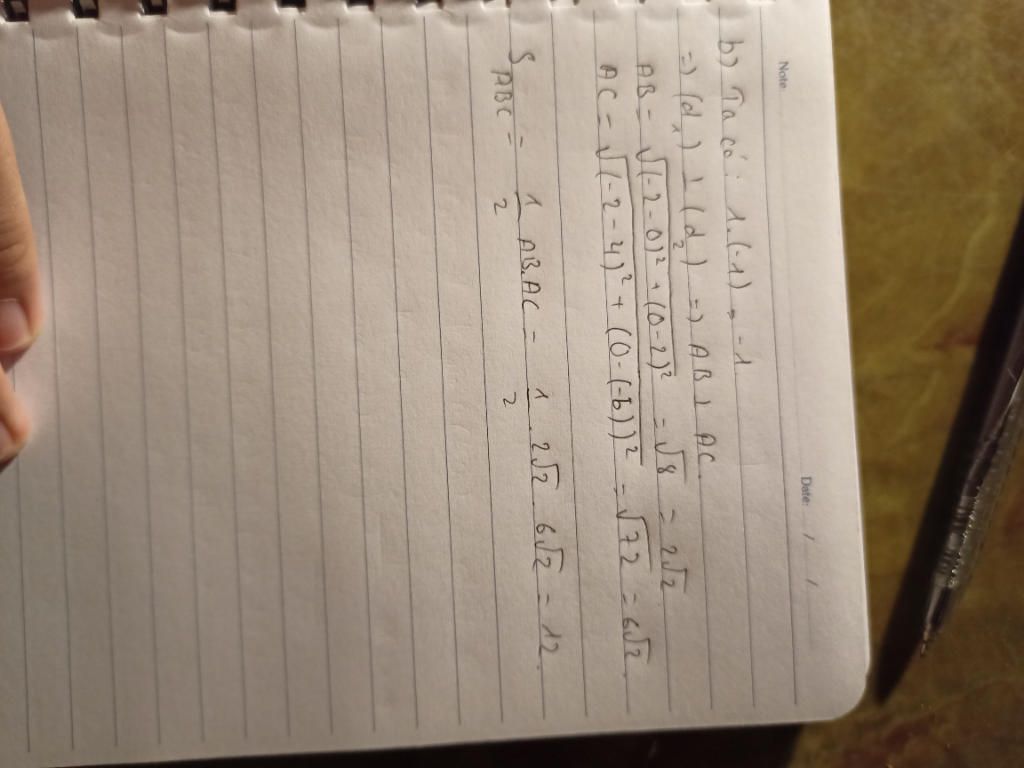 Note:
Date: / /
b) Ta có: 1.(-1) = -1
=> (d₁) ⊥ (d₂) => AB ⊥ AC.
AB = √(-2-0)² + (0-2)² = √8 = 2√2
AC = √(-2-4)² + (0-(-6))² = √72 = 6√2
S ABC = 1/2 AB.AC = 1/2 . 2√2 . 6√2 = 12.